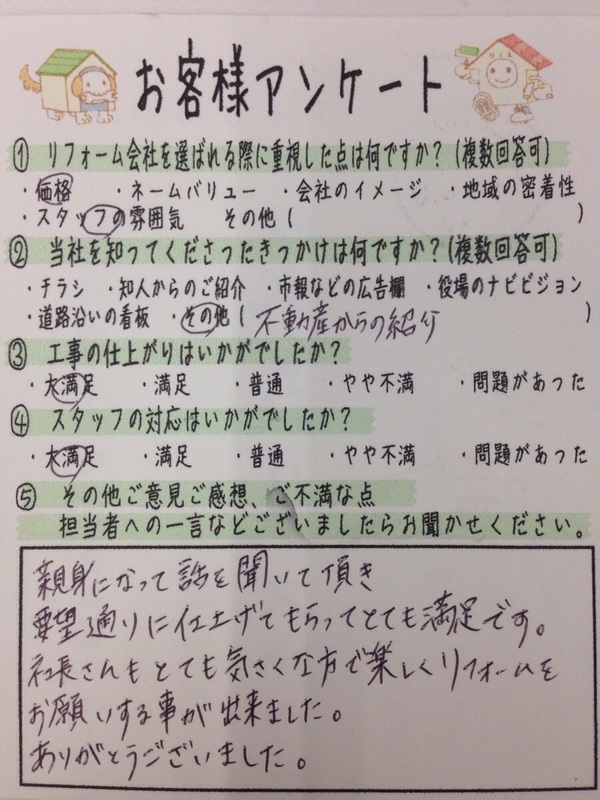 お客様アンケート
リノス
① リフォーム会社を選ばれる際に重視した点は何ですか？(複数回答可)
・価格 ・ネームバリュー ・会社のイメージ ・地域の密着性
・スタッフの雰囲気 その他( )
② 当社を知ってくださったきっかけは何ですか？(複数回答可)
・チラシ ・知人からのご紹介 ・市報などの広告欄 ・役場のナビビジョン
・道路沿いの看板 ・その他( 不動産からの紹介 )
③ 工事の仕上がりはいかがでしたか？
・大満足 ・満足 ・普通 ・やや不満 ・問題があった
④ スタッフの対応はいかがでしたか？
・大満足 ・満足 ・普通 ・やや不満 ・問題があった
⑤ その他ご意見ご感想、ご不満な点
担当者への一言などございましたらお聞かせください。
親身になって話を聞いて頂き
要望通りに仕上げてもらってとても満足です。
社長さんもとても気さくな方で楽しくリフォームを
お願いする事が出来ました。
ありがとうございました。